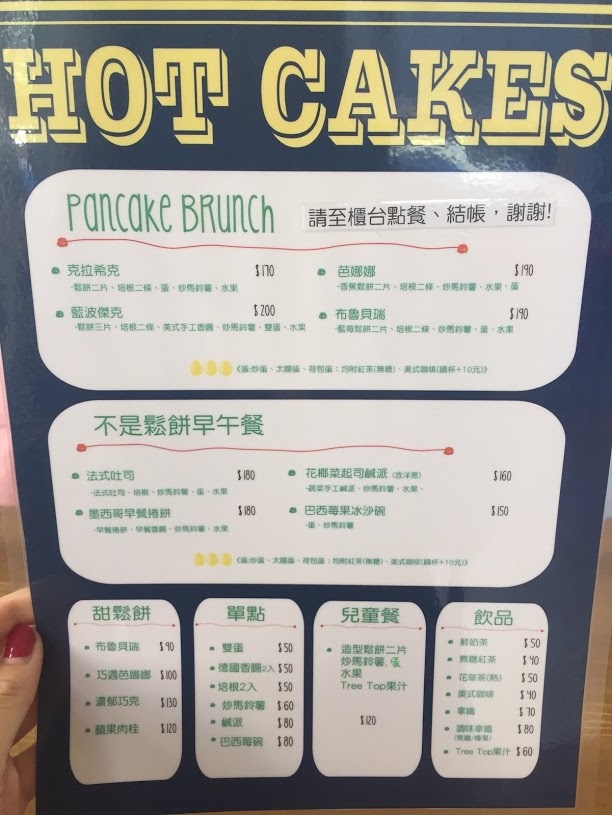 HOT CAKES
Pancake Brunch
請至櫃台點餐、結帳，謝謝!
克拉希克 $170
-鬆餅二片、培根二條、蛋、炒馬鈴薯、水果
芭娜娜 $190
-香蕉鬆餅二片、培根二條、炒馬鈴薯、水果、蛋
藍波傑克 $200
-鬆餅三片、培根二條、美式手工香腸、炒馬鈴薯、雙蛋、水果
布魯貝瑞 $190
-藍莓鬆餅二片、培根二條、炒馬鈴薯、蛋、水果
《蛋:炒蛋、太陽蛋、荷包蛋；均附紅茶(無糖)、美式咖啡(續杯+10元)》
不是鬆餅早午餐
法式吐司 $180
-法式吐司、培根、炒馬鈴薯、蛋、水果
花椰菜起司鹹派 (含洋蔥) $160
-蔬菜手工鹹派、炒馬鈴薯、水果、
墨西哥早餐捲餅 $180
-早餐捲餅、早餐香腸、炒馬鈴薯、水果
巴西莓果冰沙碗 $150
-蛋、炒馬鈴薯
《蛋:炒蛋、太陽蛋、荷包蛋；均附紅茶(無糖)、美式咖啡(續杯+10元)》
甜鬆餅
布魯貝瑞 $90
巧遇芭娜娜 $100
濃郁巧克 $130
蘋果肉桂 $120
單點
雙蛋 $50
德國香腸2入 $50
培根2入 $50
炒馬鈴薯 $60
鹹派 $80
巴西莓碗 $80
兒童餐
造型鬆餅二片
炒馬鈴薯、蛋
水果
Tree Top果汁
$120
飲品
鮮奶茶 $50
無糖紅茶 $40
花草茶(熱) $50
美式咖啡 $40
拿鐵 $70
調味拿鐵 $80
(焦糖/榛果)
Tree Top果汁 $60